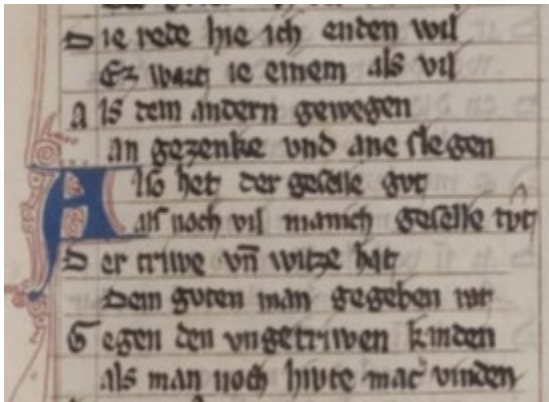 Die rede hie ich enden wil
Ez wart ie einem als vil
Als dem andern gewegen
an gezenke vnd ane slegen
Also het der geselle gvt
als noch vil manich geselle tvt
Der triwe vn̄ witze hat
Dem guten man gegeben rat
Gegen den vngetriwen kinden
als man noch hivte mac vinden